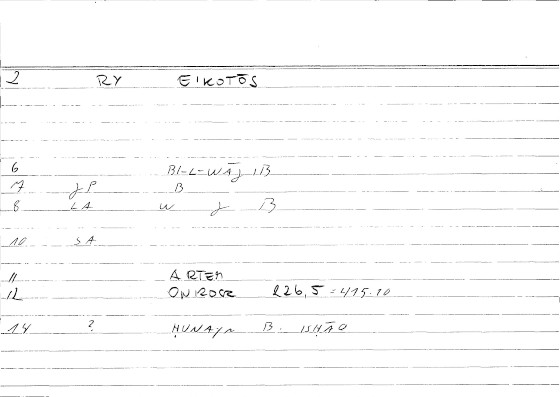 2 RY EIKOTŌS
6 BI-L-WĀJIB
7 JP B
8 LA W J B
10 SA
11 ARTEM
12 ONIROCR 226,5 = 415.10
14 ? ḤUNAYN B. ISḤĀQ